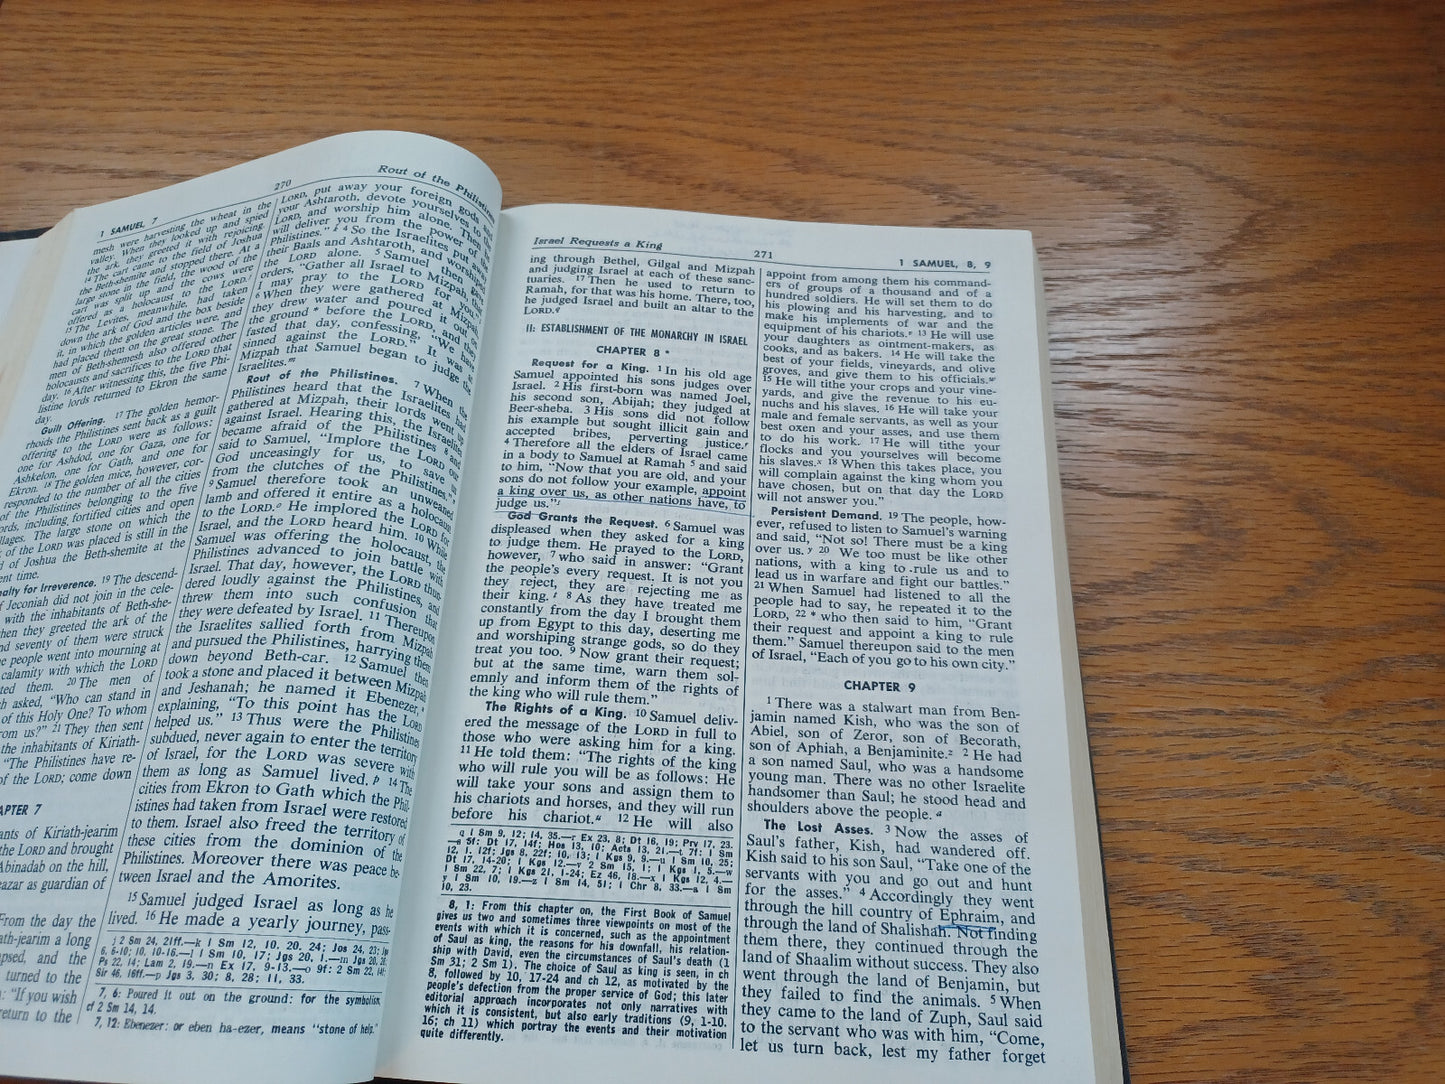 270
Rout of the Philistines
1 SAMUEL, 7
mesh were harvesting the wheat in the
valley. When they looked up and spied
the ark, they greeted it with rejoicing.
14 The cart came to the field of Joshua
the Beth-shemite and stopped there. At a
large stone in the field, the wood of the
cart was split up and the cows were
offered as a holocaust to the LORD.
15 The Levites, meanwhile, had taken
down the ark of God and the box beside
it, in which the golden articles were, and
had placed them on the great stone. The
men of Beth-shemesh also offered other
holocausts and sacrifices to the LORD that
day. 16 After witnessing this, the five Phi-
listine lords returned to Ekron the same
day.
Guilt Offering. 17 The golden hemor-
rhoids the Philistines sent back as a guilt
offering to the LORD were as follows:
one for Ashdod, one for Gaza, one for
Ashkelon, one for Gath, and one for
Ekron. 18 The golden mice, however, cor-
responded to the number of all the cities
of the Philistines belonging to the five
lords, including fortified cities and open
villages. The large stone on which the
of the LORD was placed is still in the
of Joshua the Beth-shemite at the
time.
for Irreverence. 19 The descend-
Jeconiah did not join in the cele-
with the inhabitants of Beth-she-
they greeted the ark of the
seventy of them were struck
people went into mourning at
calamity with which the LORD
them. 20 The men of
asked, "Who can stand in
of this Holy One? To whom
us?" 21 They then sent
the inhabitants of Kiriath-
"The Philistines have re-
of the LORD; come down
7
of Kiriath-jearim
the LORD and brought
Abinadab on the hill,
as guardian of
From the day the
a long
and the
turned to the
"If you wish
return to the
LORD, put away your foreign gods and
your Ashtaroth, devote yourselves to the
LORD, and worship him alone. Then he
will deliver you from the power of the
Philistines." k 4 So the Israelites put away
their Baals and Ashtaroth, and worshiped
the LORD alone. 5 Samuel then gave
orders, "Gather all Israel to Mizpah, that
I may pray to the LORD for you."
6 When they were gathered at Mizpah,
they drew water and poured it out on
the ground * before the LORD, and they
fasted that day, confessing, "We have
sinned against the LORD." It was at
Mizpah that Samuel began to judge the
Israelites. m
Rout of the Philistines. 7 When the
Philistines heard that the Israelites had
gathered at Mizpah, their lords went up
against Israel. Hearing this, the Israelites
became afraid of the Philistines 8 and
said to Samuel, "Implore the LORD our
God unceasingly for us, to save us
from the clutches of the Philistines."
9 Samuel therefore took an unweaned
lamb and offered it entire as a holocaust
to the LORD. o He implored the LORD for
Israel, and the LORD heard him. 10 While
Samuel was offering the holocaust, the
Philistines advanced to join battle with
Israel. That day, however, the LORD thun-
dered loudly against the Philistines, and
threw them into such confusion that
they were defeated by Israel. 11 Thereupon
the Israelites sallied forth from Mizpah
and pursued the Philistines, harrying them
down beyond Beth-car. 12 Samuel then
took a stone and placed it between Mizpah
and Jeshanah; he named it Ebenezer, *
explaining, "To this point has the LORD
helped us." 13 Thus were the Philistines
subdued, never again to enter the territory
of Israel, for the LORD was severe with
them as long as Samuel lived. p 14 The
cities from Ekron to Gath which the Phil-
istines had taken from Israel were restored
to them. Israel also freed the territory of
these cities from the dominion of the
Philistines. Moreover there was peace be-
tween Israel and the Amorites.
15 Samuel judged Israel as long as he
lived. 16 He made a yearly journey, pass-
j 2 Sm 24, 21ff.—k 1 Sm 12, 10. 20. 24; Jos 24, 23; Jgs
6, 6-10; 10, 10-16.—l 1 Sm 10, 17; Jgs 20, 1.—m Jgs 20, 26;
Ps 22, 14; Lam 2, 19.—n Ex 17, 9-13.—o 9f: 2 Sm 22, 14f;
Sir 46, 16ff.—p Jgs 3, 30; 8, 28; 11, 33.
7, 6: Poured it out on the ground: for the symbolism,
cf 2 Sm 14, 14.
7, 12: Ebenezer: or eben ha-ezer, means "stone of help."
Israel Requests a King
271
1 SAMUEL, 8, 9
ing through Bethel, Gilgal and Mizpah
and judging Israel at each of these sanc-
tuaries. 17 Then he used to return to
Ramah, for that was his home. There, too,
he judged Israel and built an altar to the
LORD. q
II: ESTABLISHMENT OF THE MONARCHY IN ISRAEL
CHAPTER 8 *
Request for a King. 1 In his old age
Samuel appointed his sons judges over
Israel. 2 His first-born was named Joel,
his second son, Abijah; they judged at
Beer-sheba. 3 His sons did not follow
his example but sought illicit gain and
accepted bribes, perverting justice. r
4 Therefore all the elders of Israel came
in a body to Samuel at Ramah 5 and said
to him, "Now that you are old, and your
sons do not follow your example, appoint
a king over us, as other nations have, to
judge us." s
God Grants the Request. 6 Samuel was
displeased when they asked for a king
to judge them. He prayed to the LORD,
however, 7 who said in answer: "Grant
the people's every request. It is not you
they reject, they are rejecting me as
their king. t 8 As they have treated me
constantly from the day I brought them
up from Egypt to this day, deserting me
and worshiping strange gods, so do they
treat you too. 9 Now grant their request;
but at the same time, warn them sol-
emnly and inform them of the rights of
the king who will rule them."
The Rights of a King. 10 Samuel deliv-
ered the message of the LORD in full to
those who were asking him for a king.
11 He told them: "The rights of the king
who will rule you will be as follows: He
will take your sons and assign them to
his chariots and horses, and they will run
before his chariot. u 12 He will also
q 1 Sm 9, 12; 14, 35.—r Ex 23, 8; Dt 16, 19; Prv 17, 23.
—s 5f: Dt 17, 14f; Hos 13, 10; Acts 13, 21.—t 7f: 1 Sm
12, 1. 12f; Jgs 8, 22f; 10, 13; 1 Kgs 9, 9.—u 1 Sm 10, 25;
Dt 17, 14-20; 1 Kgs 12.—v 2 Sm 15, 1; 1 Kgs 1, 5.—w
1 Sm 22, 7; 1 Kgs 21, 1-24; Ez 46, 18.—x 1 Kgs 12, 4.—
y 1 Sm 10, 19.—z 1 Sm 14, 51; 1 Chr 8, 33.—a 1 Sm
10, 23.
8, 1: From this chapter on, the First Book of Samuel
gives us two and sometimes three viewpoints on most of the
events with which it is concerned, such as the appointment
of Saul as king, the reasons for his downfall, his relation-
ship with David, even the circumstances of Saul's death (1
Sm 31; 2 Sm 1). The choice of Saul as king is seen, in ch
8, followed by 10, 17-24 and ch 12, as motivated by the
people's defection from the proper service of God; this later
editorial approach incorporates not only narratives with
which it is consistent, but also early traditions (9, 1-10.
16; ch 11) which portray the events and their motivation
quite differently.
appoint from among them his command-
ers of groups of a thousand and of a
hundred soldiers. He will set them to do
his plowing and his harvesting, and to
make his implements of war and the
equipment of his chariots. v 13 He will use
your daughters as ointment-makers, as
cooks, and as bakers. 14 He will take the
best of your fields, vineyards, and olive
groves, and give them to his officials. w
15 He will tithe your crops and your vine-
yards, and give the revenue to his eu-
nuchs and his slaves. 16 He will take your
male and female servants, as well as your
best oxen and your asses, and use them
to do his work. 17 He will tithe your
flocks and you yourselves will become
his slaves. x 18 When this takes place, you
will complain against the king whom you
have chosen, but on that day the LORD
will not answer you."
Persistent Demand. 19 The people, how-
ever, refused to listen to Samuel's warning
and said, "Not so! There must be a king
over us. y 20 We too must be like other
nations, with a king to rule us and to
lead us in warfare and fight our battles."
21 When Samuel had listened to all the
people had to say, he repeated it to the
LORD, 22 * who then said to him, "Grant
their request and appoint a king to rule
them." Samuel thereupon said to the men
of Israel, "Each of you go to his own city."
CHAPTER 9
1 There was a stalwart man from Ben-
jamin named Kish, who was the son of
Abiel, son of Zeror, son of Becorath,
son of Aphiah, a Benjaminite. z 2 He had
a son named Saul, who was a handsome
young man. There was no other Israelite
handsomer than Saul; he stood head and
shoulders above the people. a
The Lost Asses. 3 Now the asses of
Saul's father, Kish, had wandered off.
Kish said to his son Saul, "Take one of the
servants with you and go out and hunt
for the asses." 4 Accordingly they went
through the hill country of Ephraim, and
through the land of Shalishah. Not finding
them there, they continued through the
land of Shaalim without success. They also
went through the land of Benjamin, but
they failed to find the animals. 5 When
they came to the land of Zuph, Saul said
to the servant who was with him, "Come,
let us turn back, lest my father forget